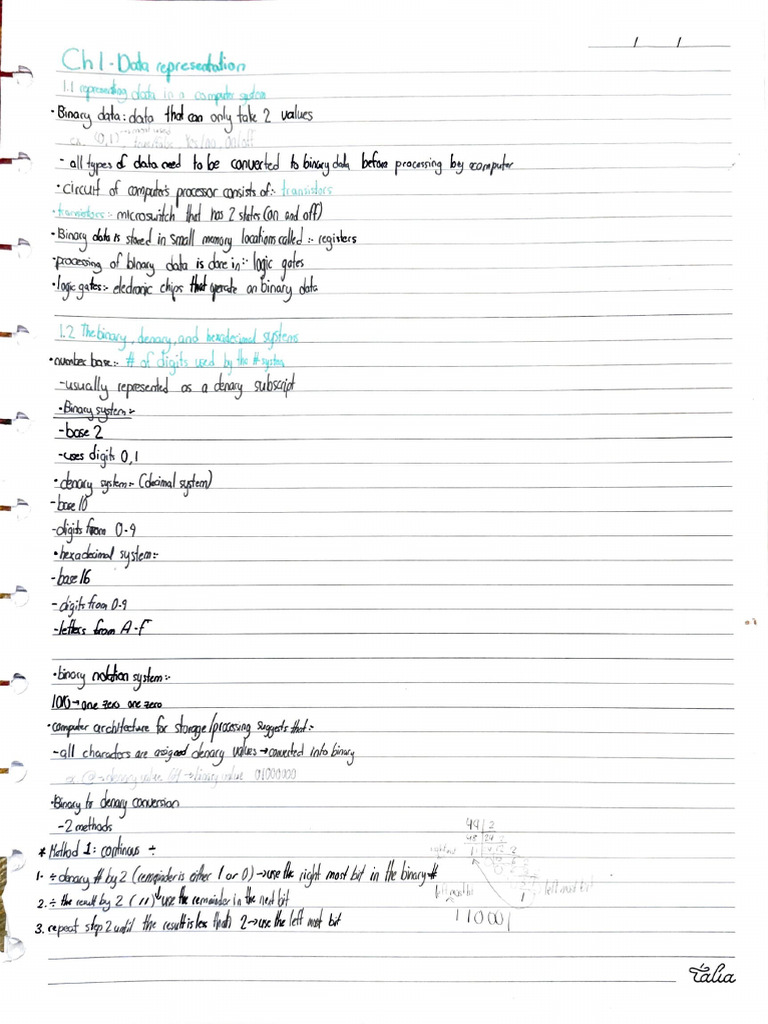 / /
Ch1 - Data representation
1.1 representing data in a computer system
• Binary data: data that can only take 2 values
→ most used
ex. (0,1), true/false, Yes/no, on/off
- all types of data need to be converted to binary data before processing by a computer
• circuit of computer's processor consists of:- transistors
• transistors:- microswitch that has 2 states (on and off)
• Binary data is stored in small memory locations called:- registers
• processing of binary data is done in:- logic gates
• logic gates:- electronic chips that operate on binary data
1.2 The binary, denary, and hexadecimal systems
• number base:- # of digits used by the # system
- usually represented as a denary subscript
• Binary system:-
- base 2
- uses digits 0,1
• denary system:- (decimal system)
- base 10
- digits from 0-9
• hexadecimal system:-
- base 16
- digits from 0-9
- letters from A-F
• binary notation system:-
→ one zero one zero
• computer architecture for storage/processing suggests that:-
- all charactors are assigned denary values → converted into binary
ex. @ → denary value 64 → binary value 01000000
• Binary to denary conversion
- 2 methods
* Method 1: continous ÷
1- ÷ denary # by 2 (remainder is either 1 or 0) → use the right most bit in the binary #
2. ÷ the result by 2 (11) use the remainder in the next bit
3. repeat step 2 until the result is less than 2 → use the left most bit
44 2
48 24 2
right most
left most bit
left most bit
110001
Talia